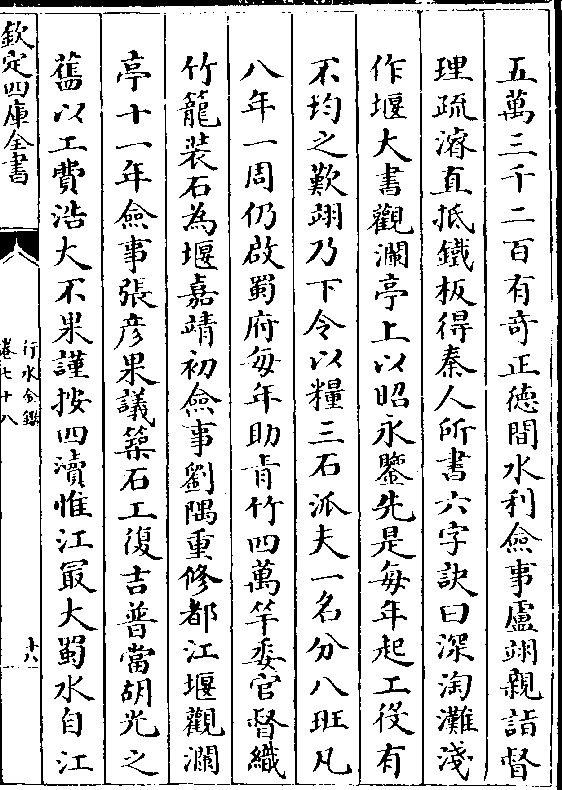 五萬三千二百有奇正徳間水利僉事盧翊親詣督
理疏濬直抵鐵板得秦人所書六字訣曰深淘灘淺
作堰大書觀瀾亭上以昭永鑒先是每年起工役有
不均之歎翊乃下令以糧三石派夫一名分八班凡
八年一周仍啟蜀府每年助青竹四萬竿委官督織
竹籠裝石為堰嘉靖初僉事劉隅重修都江堰觀瀾
亭十一年僉事張彦杲議築石工復吉普當胡光之
舊以工費浩大不果謹按四瀆惟江最大蜀水自江
欽定四庫全書
行水金鑑
卷七十八
十八